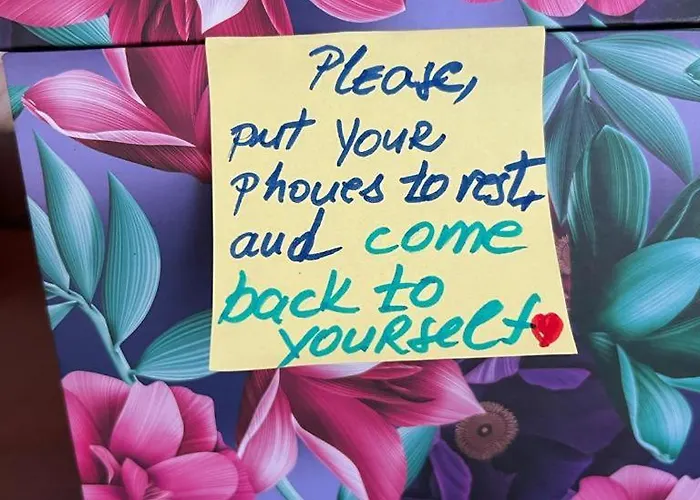 Please,
put your
phones to rest,
and come
back to
yourself